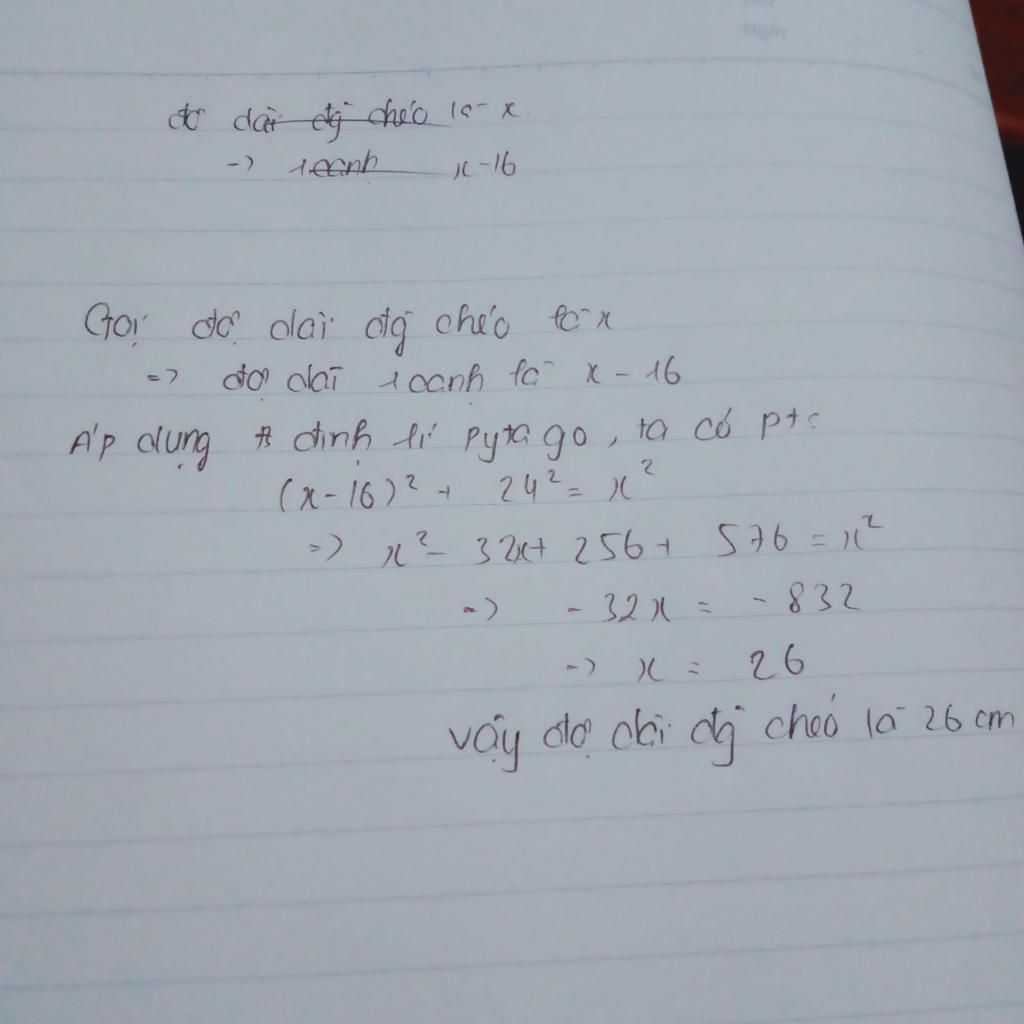 độ dài đg chéo là x
-> 1 cạnh x-16
Gọi độ dài đg chéo là x
=> độ dài 1 cạnh là x - 16
Áp dụng định lí pytago, ta có pt:
(x-16)² + 24² = x²
=> x² - 32x + 256 + 576 = x²
=> -32x = -832
=> x = 26
vậy độ dài đg chéo là 26 cm